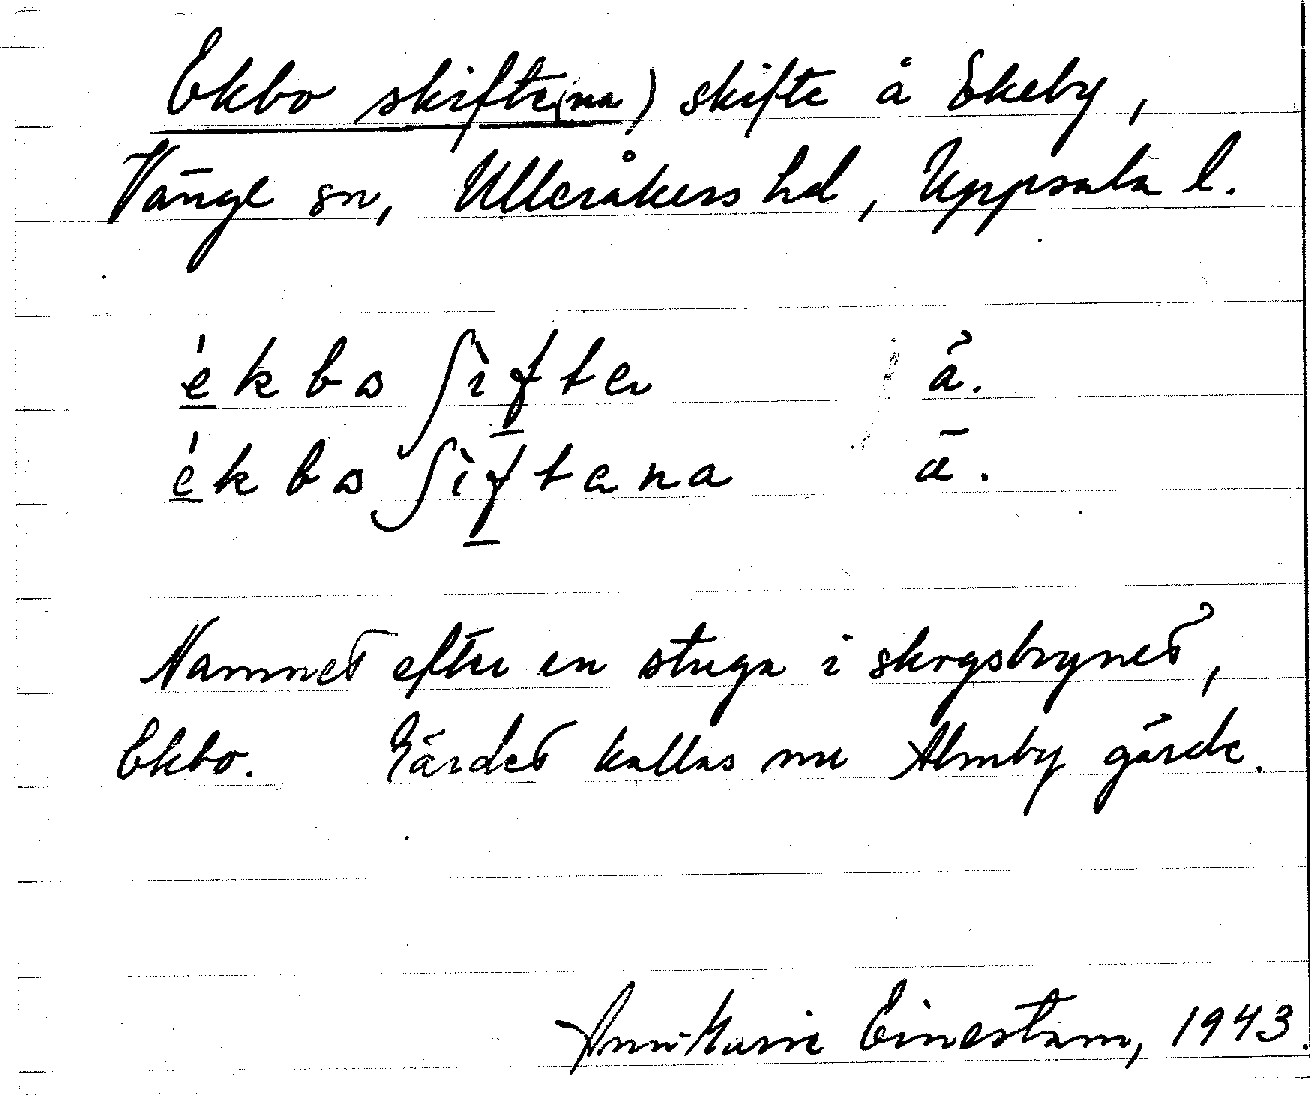 Ekbo skifte(na) skifte å Ekeby,
Vänge sn, Ulleråkers hd, Uppsala l.
ékbo ʃìfta å.
ékbo ʃìftana ā.
Namnet efter en stuga i skogsbrynet,
Ekbo. Gärdet kallas nu Almby gärde.
Ann-Marie Einestam, 1943.